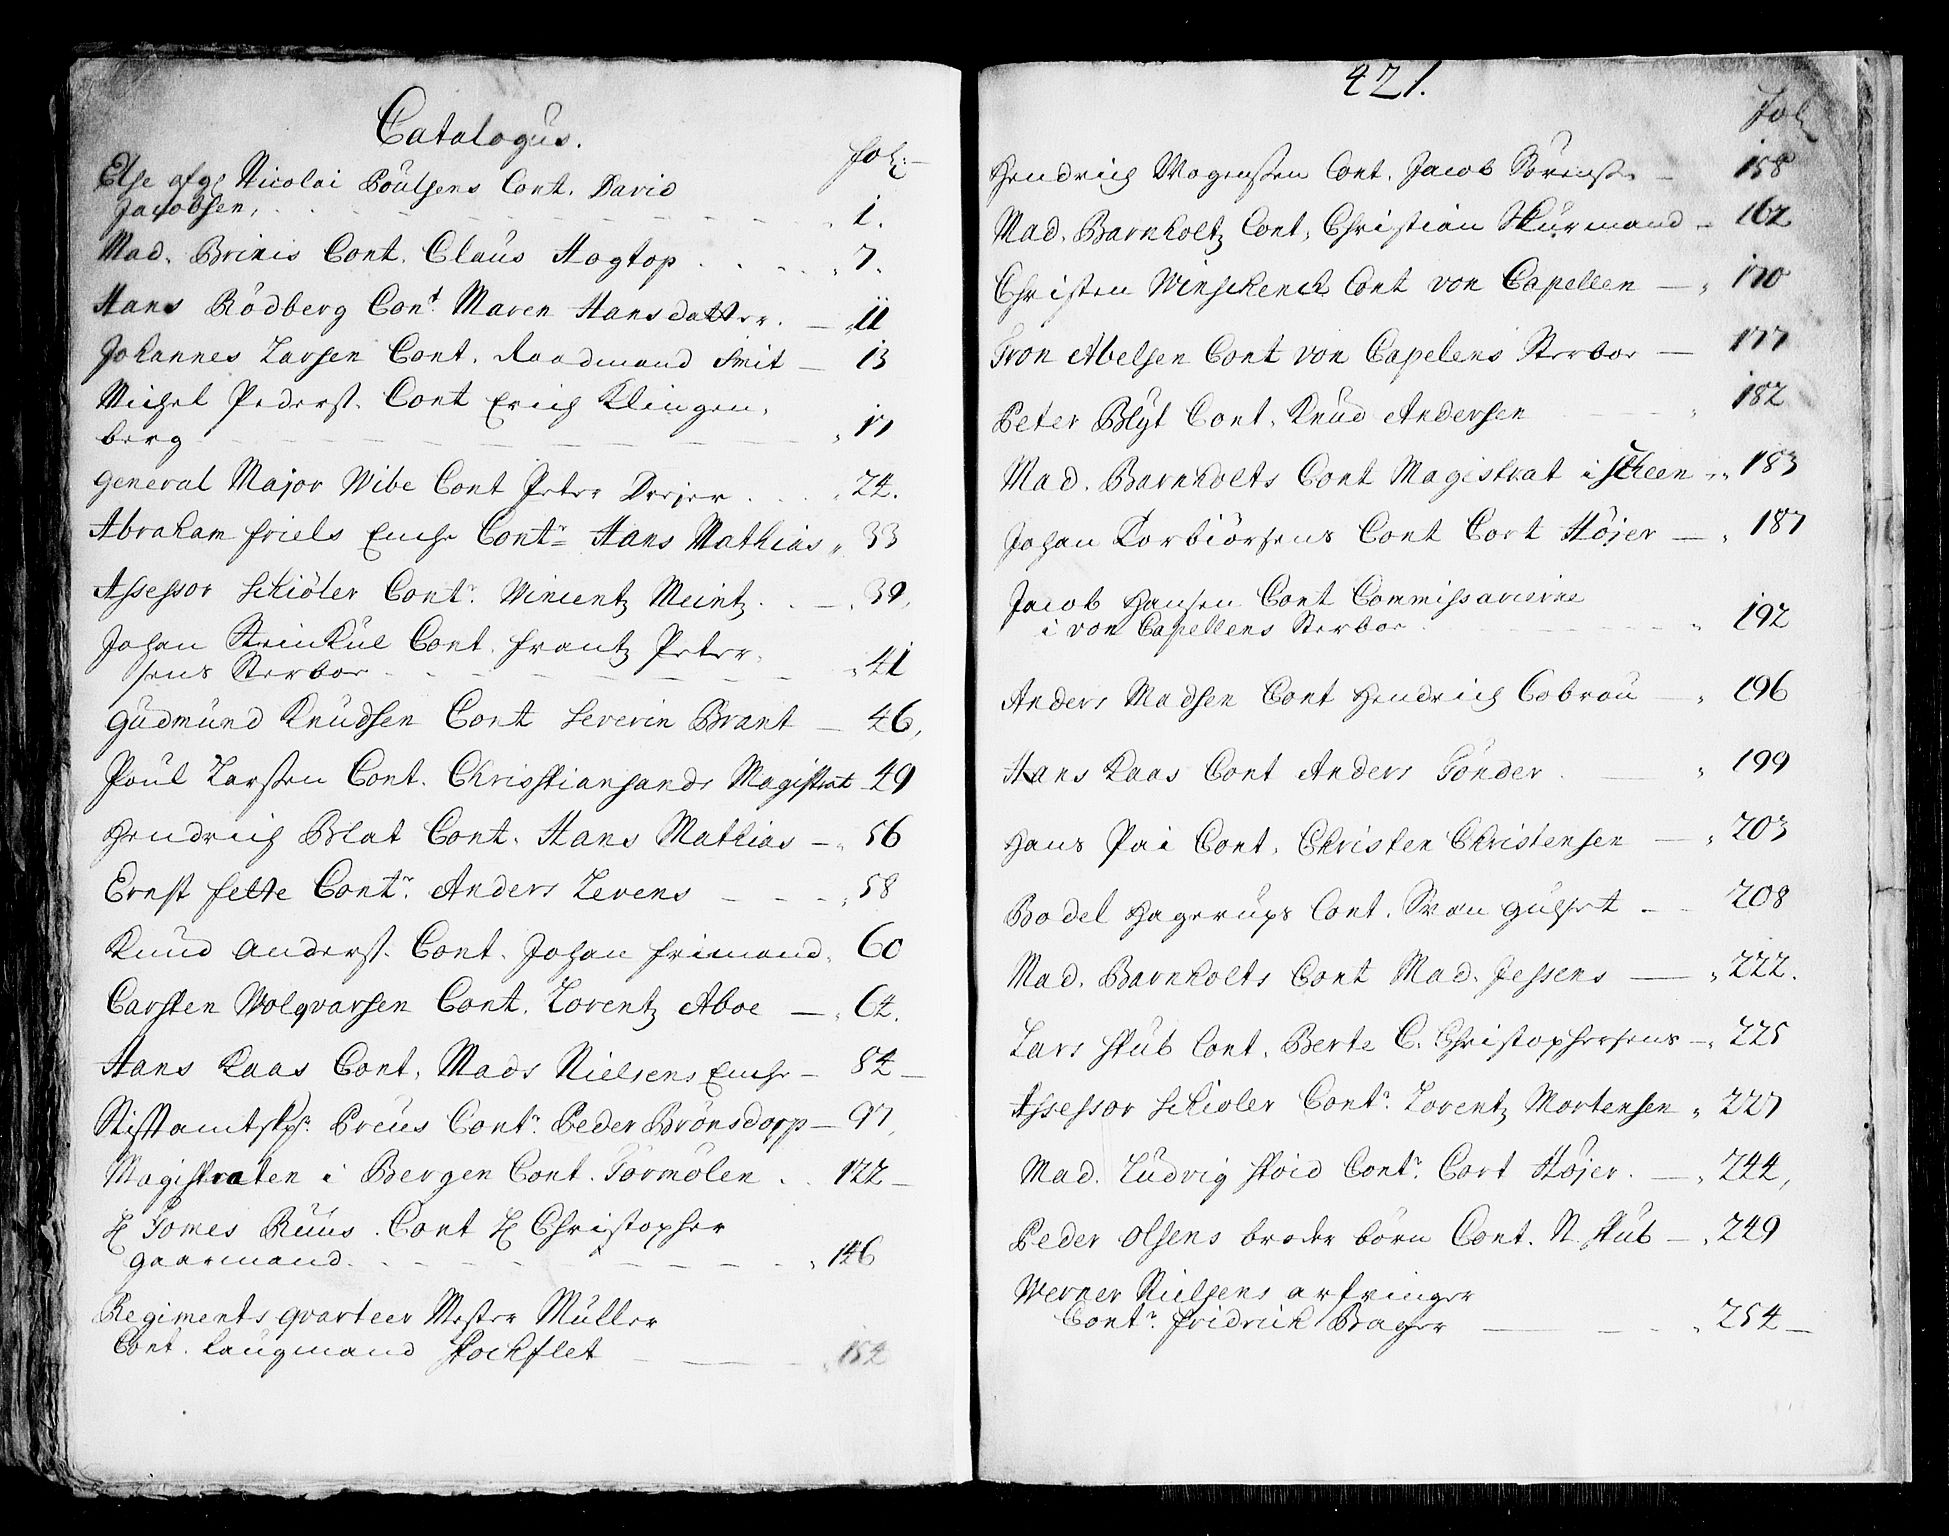 Catalogus.
fol:
Else afg. Nicolai Poulsens Cont. David
Jacobsen, 1.
Mad. Brinis Cont. Claus Hogtop 7.
Hans Rödberg Cont Maren Hansdatter. 11
Johannes Larsen Cont. Raadmand Smit 13
Michel Pederst. Cont Erich Klingen
berg 17
General Major Wibe Cont Peter Dreier 24.
Abraham friels Enche Contr Hans Mathias 33
Assessor Schiöler Contr. Vincentz Meintz 39.
Johan Steinkul Cont. frantz Peter
sens Sterboe 41
Gudmund Knudsen Cont Severin Brant 46.
Poul Larssen Cont. Christiansands Magistrat 49
Hendrich Blat Cont. Hans Mathias 56
Ernst fette Contr. Anders Levens 58
Knud Anderst. Cont. Johan frimand 60
Carsten Wolqvarsen Cont. Lorentz Aboe 64.
Hans Kaas Cont. Mads Nielsens Enche 84
Stiftamtskr. Preus Contr. Peder Brönsdorp 97.
Magistraten i Bergen Cont. Törmölen 122
H Tomes Ruus. Cont H Christopher
gaarmand. 146
Regiments qvarteer Mester Müller
Cont. Laugmand Stockflet 154
421.
fol
Hendrich Mogensen Cont. Jacob Sörens. 158
Mad. Barnholtz Cont, Christian Skurmand 162
Christen Winschench Cont von Capellen 170
Tron Abelsen Cont von Capelens Sterboe 177
Peter Blyt Cont. Knud Andersen 182
Mad. Barnholts Cont Magistrat i Scheen 183
Johan Torbiörsens Cont Cort Höjer 187
Jacob Hansen Cont Commissarierne
i von Capellens Sterboe 192
Anders Madsen Cont Hendrich Cobrou 196
Hans Kaas Cont Anders Tönder 199
Hans Pai Cont. Christen Christensen 203
Bodel Hagerups Cont. Svan Gulset 208
Mad. Barnholts Cont Mad. Jessens 222.
Lars Stub Cont. Berte C. Christophersens 225
Assessor Schioler Contr. Lorentz Mortensen 227
Mad. Ludvig Stoid Contr. Cort Höjer. 244,
Peder Olsens broder börn Cont. N. Stub 249
Werner Nielsens arfvinger
Contr. fridrich Bager 254